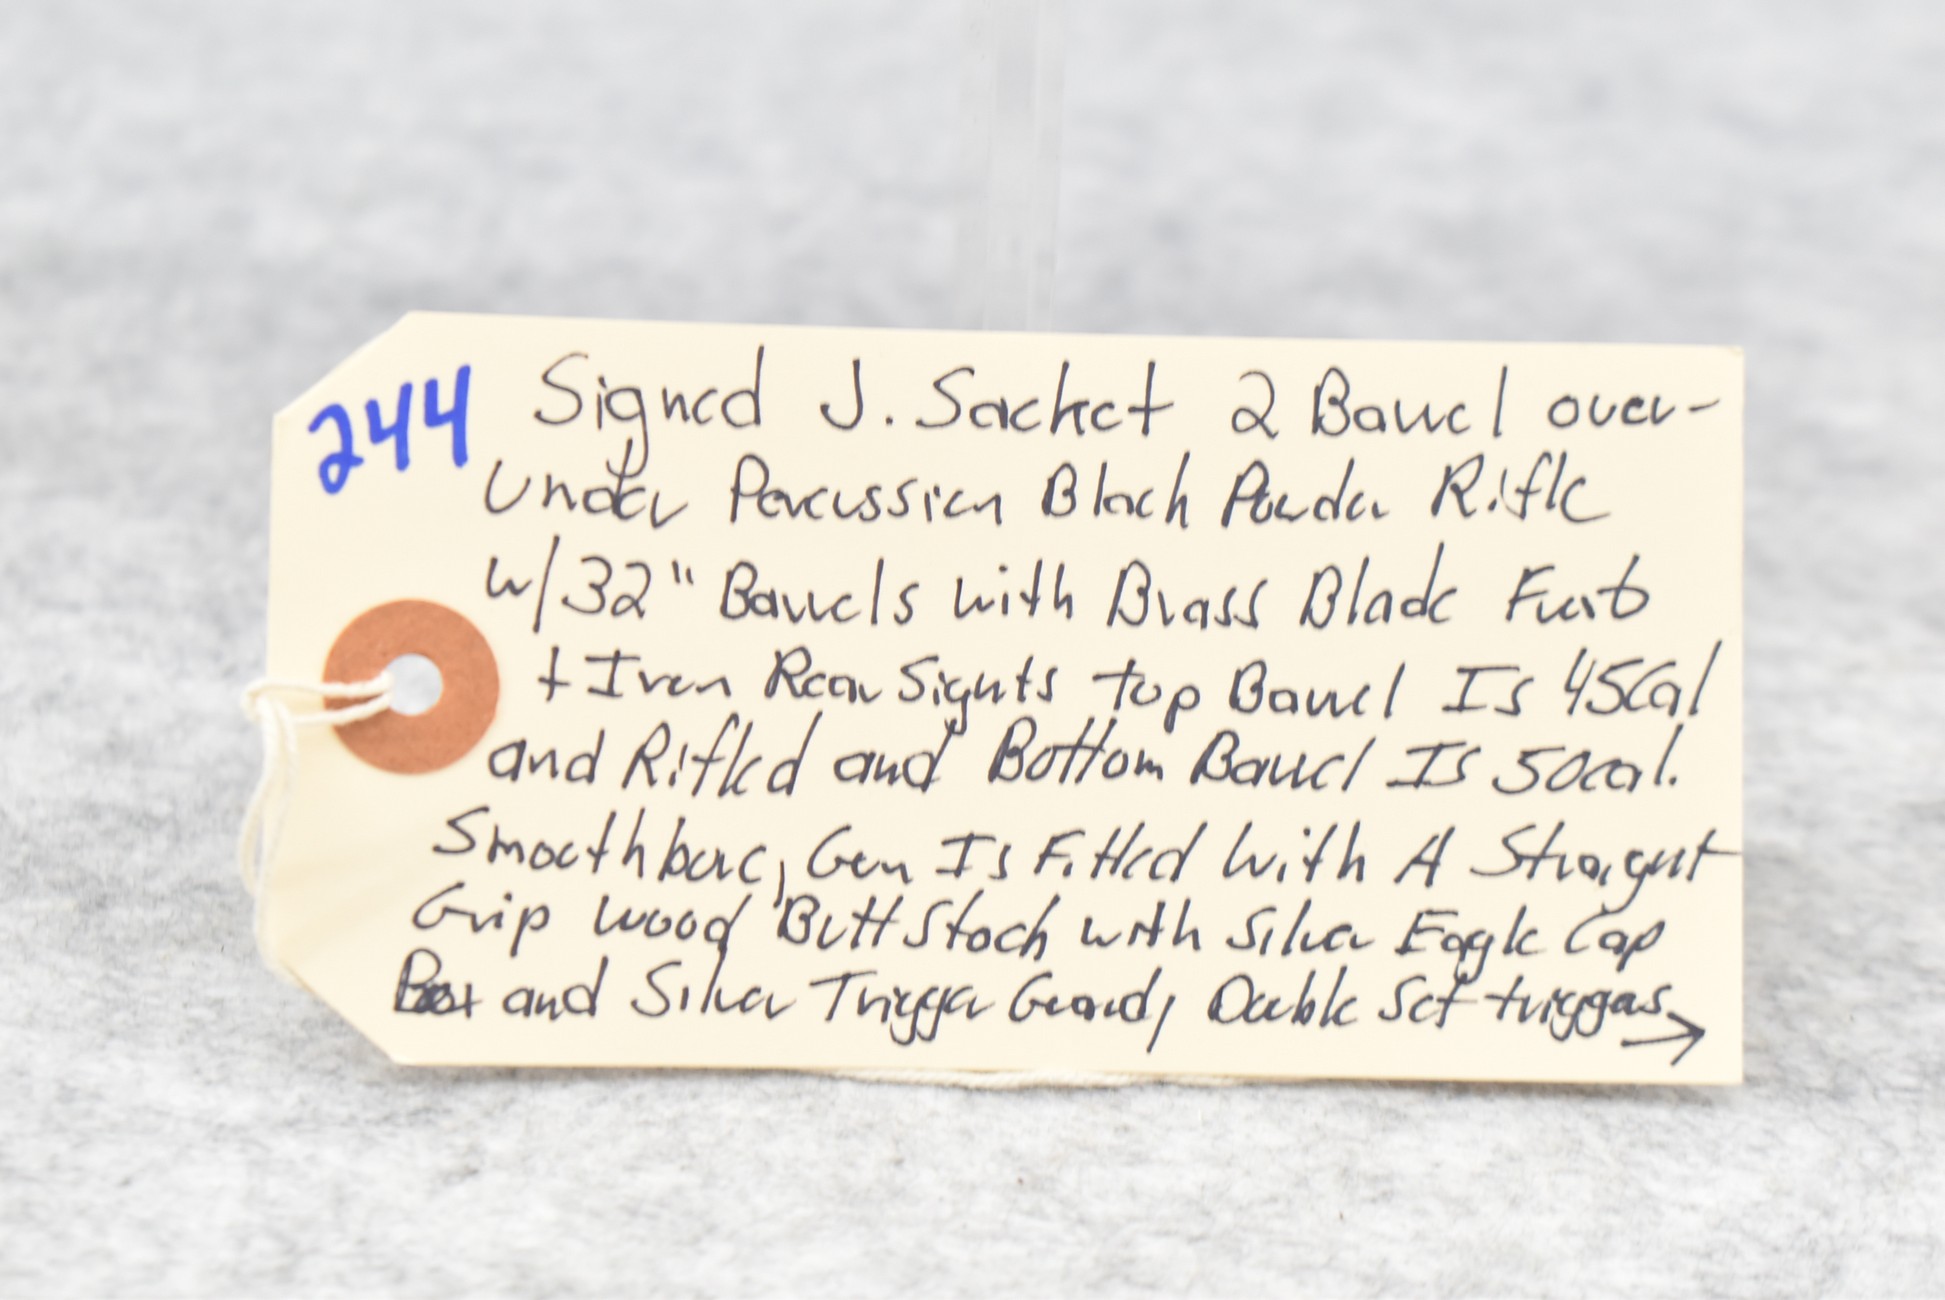 244 Signed J. Sacket 2 Barrel over-
Under Percussion Black Powder Rifle
w/32" Barrels with Brass Blade Front
+ Iron Rear Sights top Barrel Is 45Cal
and Rifled and Bottom Barrel Is 50cal.
Smoothbore, Gun Is Fitted With A Straight
Grip Wood Butt Stock with Silver Eagle Cap
Box and Silver Trigger Guard, Double Set triggers →